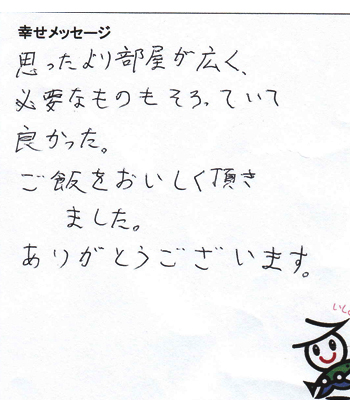 幸せメッセージ
思ったより部屋が広く、
必要なものもそろっていて
良かった。
ご飯をおいしく頂き
ました。
ありがとうございます。